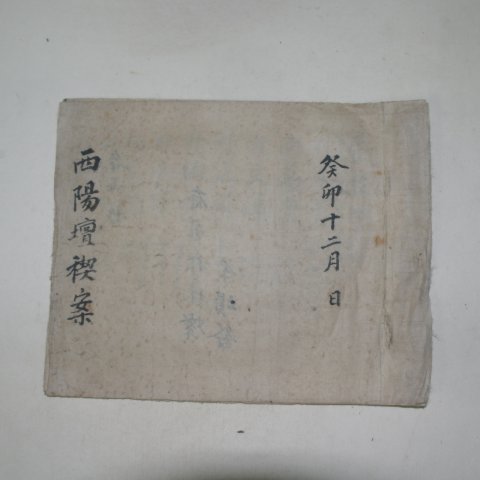 癸卯十二月 日
西陽壇稧案